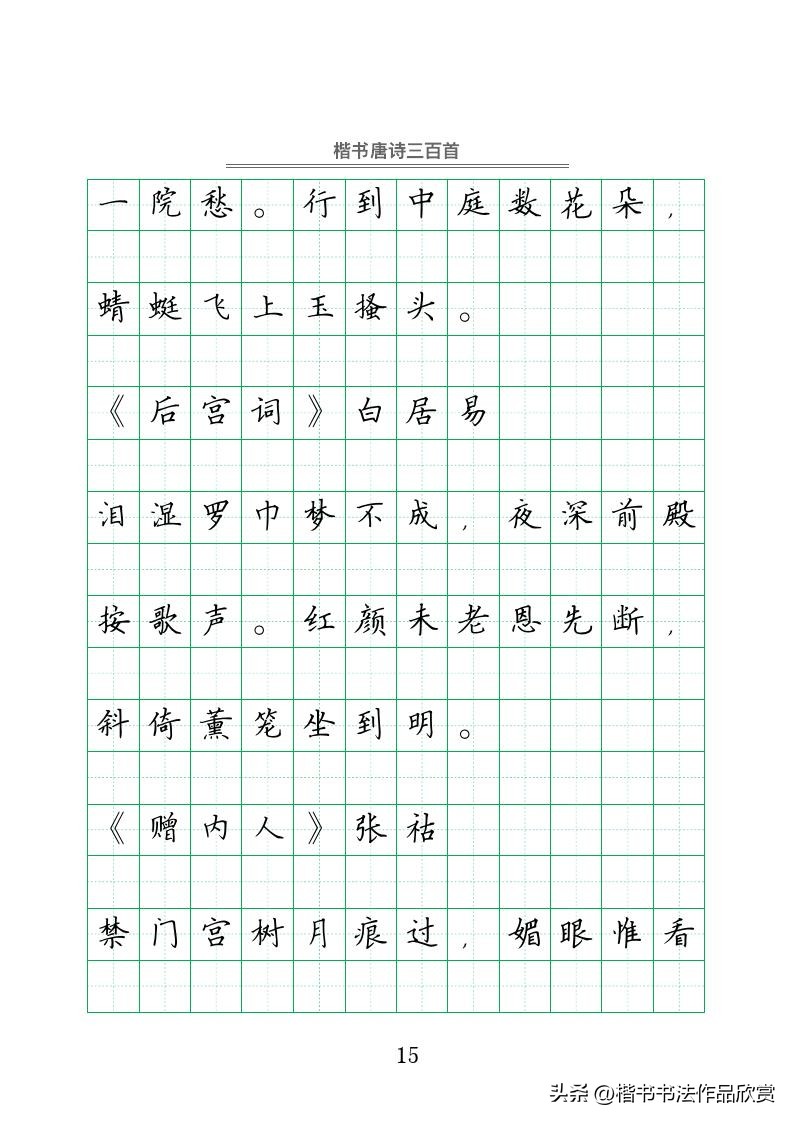 楷书唐诗三百首
一院愁。行到中庭数花朵，
蜻蜓飞上玉搔头。
《后宫词》白居易
泪湿罗巾梦不成，夜深前殿
按歌声。红颜未老恩先断，
斜倚薰笼坐到明。
《赠内人》张祜
禁门宫树月痕过，媚眼惟看
15
头条 @楷书书法作品欣赏